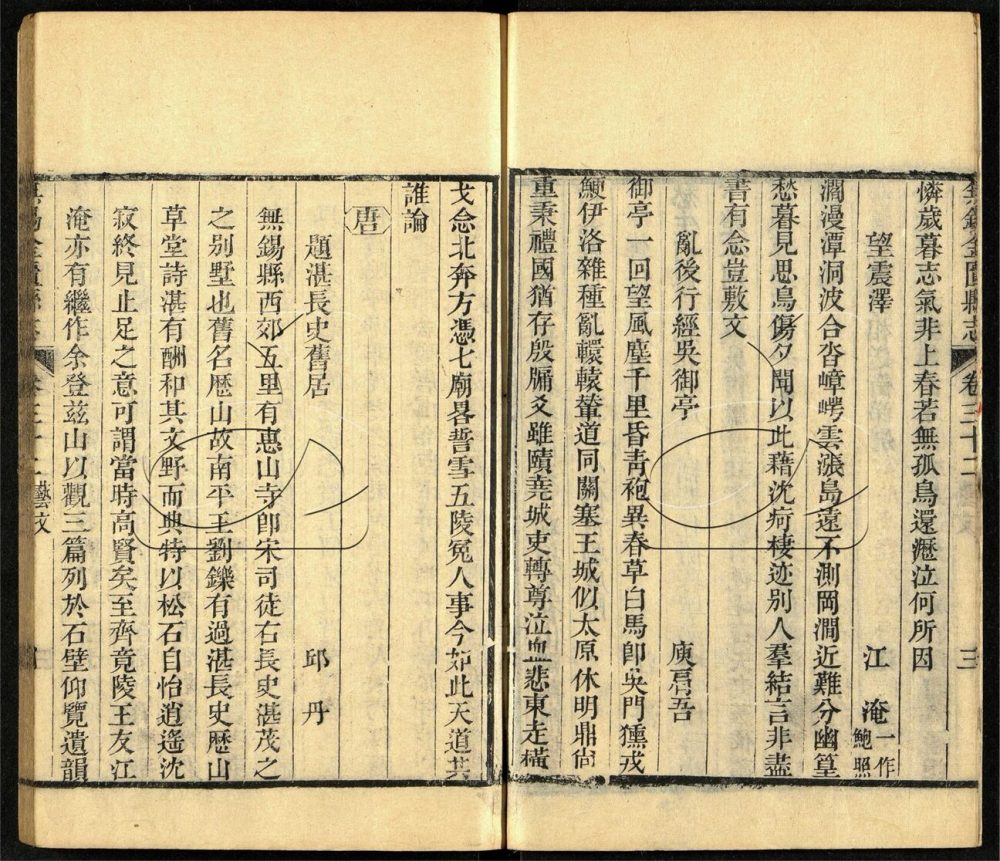 無錫金匱縣志 卷三十二 三
憐歲暮志氣非上春若無孤鳥還瀝泣何所因
望震澤 江淹一作鮑照
澗漫潭洞波合沓嶂崿雲漲島遠不測岡澗近難分幽篁
愁暮見思鳥傷夕聞以此藉沈疴棲迹别人羣結言非盡
書有念豈敷文
亂後行經吳御亭 庾肩吾
御亭一回望風塵千里昏青袍異春草白馬卽吳門獯戎
鯁伊洛雜種亂轘轅輦道同關塞王城似太原休明鼎尙
重秉禮國猶存殷牖爻雖賾堯城吏轉尊泣血悲東走橫
戈念北奔方憑七廟畧誓雪五陵冤人事今如此天道共
誰論
唐
題湛長史舊居 邱丹
無錫縣西郊五里有惠山寺卽宋司徒右長史湛茂之
之别墅也舊名歷山故南平王劉鑠有過湛長史歷山
草堂詩湛有酬和其文野而典特以松石自怡逍遙沈
寂終見止足之意可謂當時高賢矣至齊竟陵王友江
淹亦有繼作余登兹山以觀三篇列於石壁仰覽遺韻
卷三十二 藝文